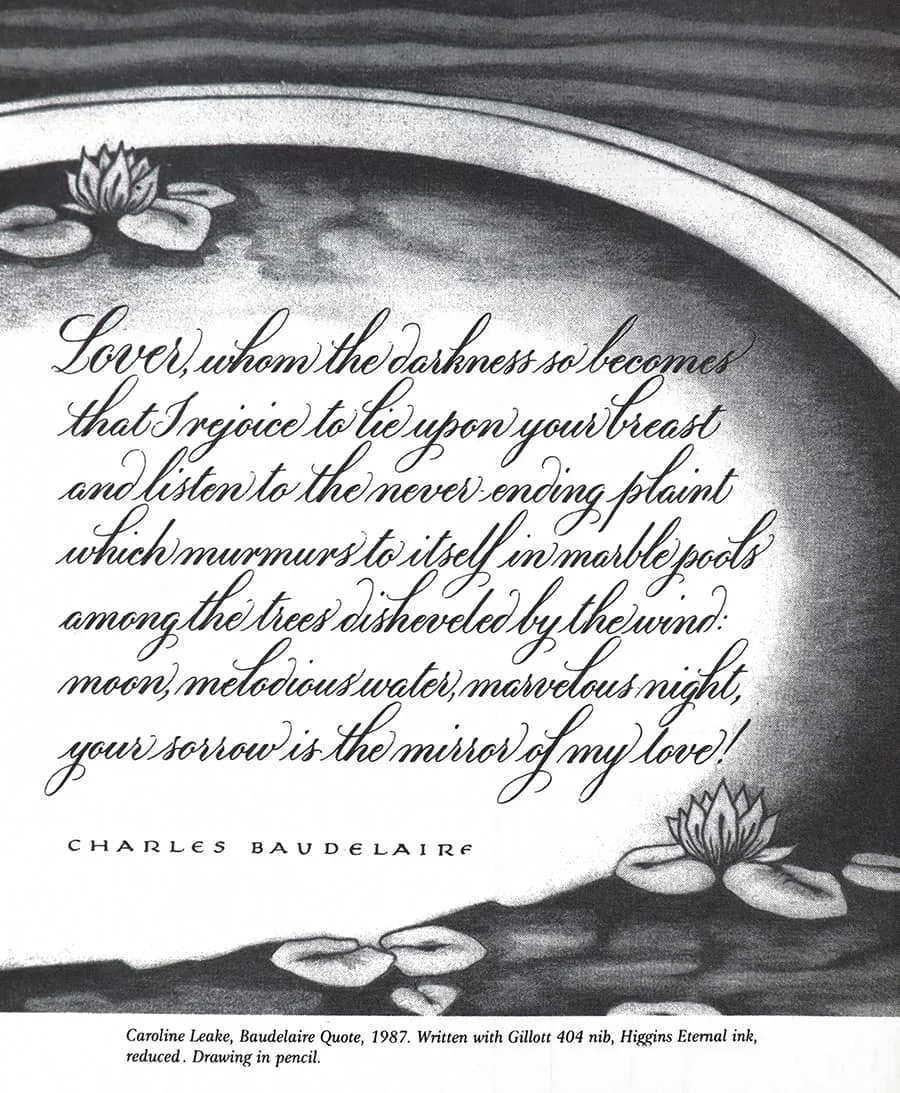 Lover, whom the darkness so becomes
that I rejoice to lie upon your breast
and listen to the never-ending plaint
which murmurs to itself in marble pools
among the trees disheveled by the wind:
moon, melodious water, marvelous night,
your sorrow is the mirror of my love!
CHARLES BAUDELAIRE
Caroline Leake, Baudelaire Quote, 1987. Written with Gillott 404 nib, Higgins Eternal ink,
reduced. Drawing in pencil.